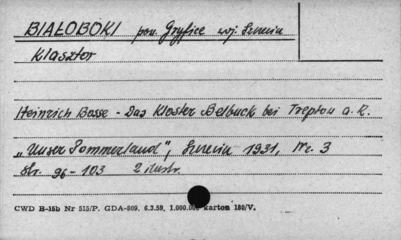 BIAŁOBOKI pow. Gryfice woj. Szczecin
Klasztor
Heinrich Bosse - Das Kloster Belbuck bei Treptow a. R.
„Unser Pommerland", Szczecin 1931, Nr. 3
Str. 96-103 2 ilustr.
CWD B-15b Nr 515/P. GDA-809. 6.3.59. 1.000.000 karton 180/V.